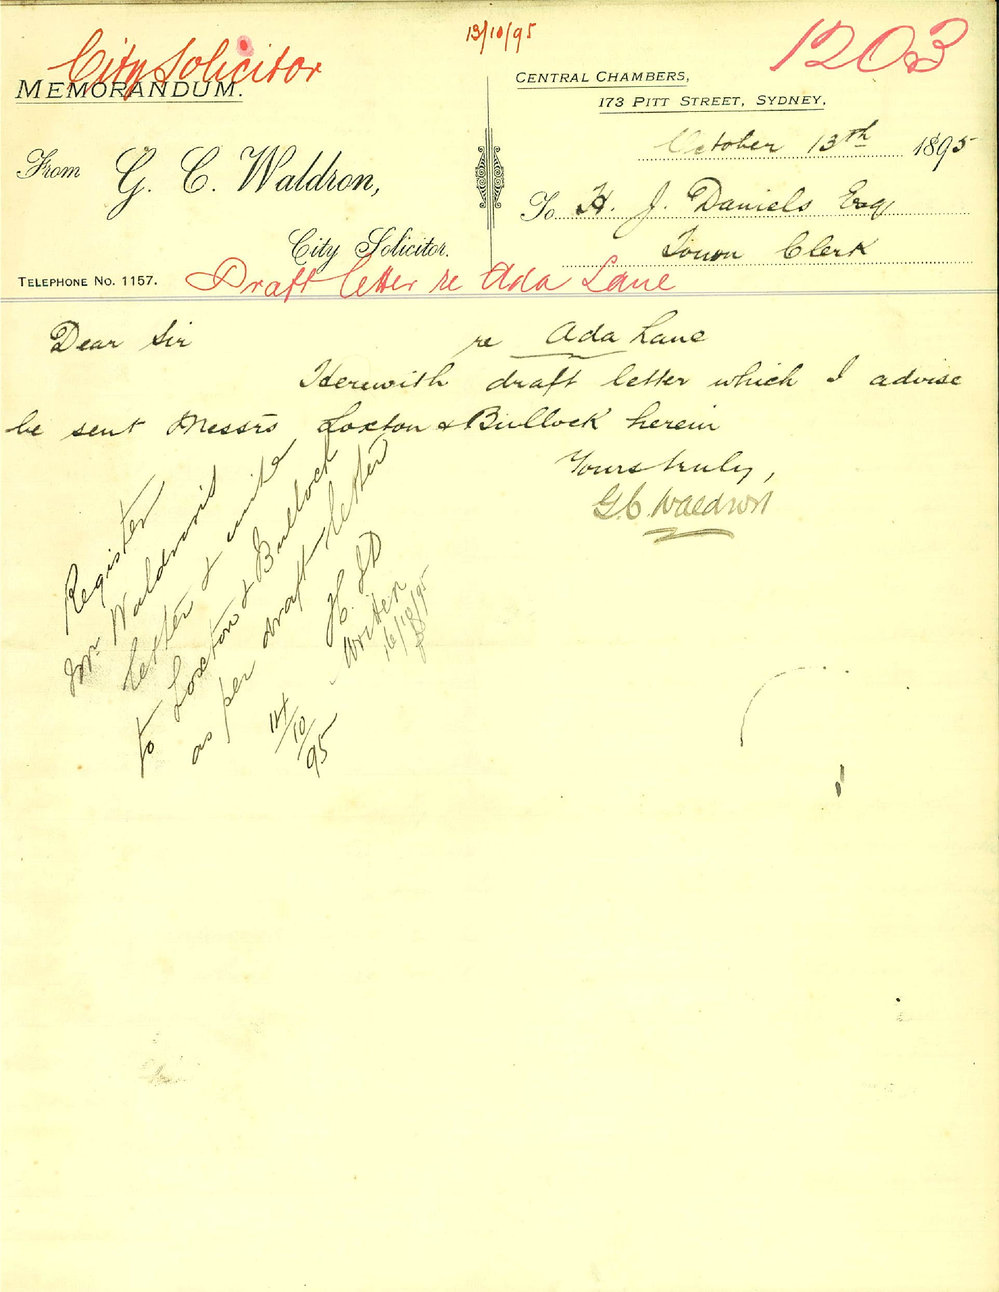 City Solicitor
13/10/95
1203
MEMORANDUM.
CENTRAL CHAMBERS,
173 PITT STREET, SYDNEY,
October 13th 1895
From G. C. Waldron,
City Solicitor.
To H. J. Daniels Esq
Town Clerk
TELEPHONE No. 1157.
Draft letter re Ada Lane
Dear Sir
re Ada Lane
Herewith draft letter which I advise
be sent Messrs Loxton & Bullock herein
Yours truly,
G.C. Waldron
Register
Mr Waldron's
letter & write
to Loxton & Bullock
as per draft letter
H.J.D
14/10/95
Written
16/10/95